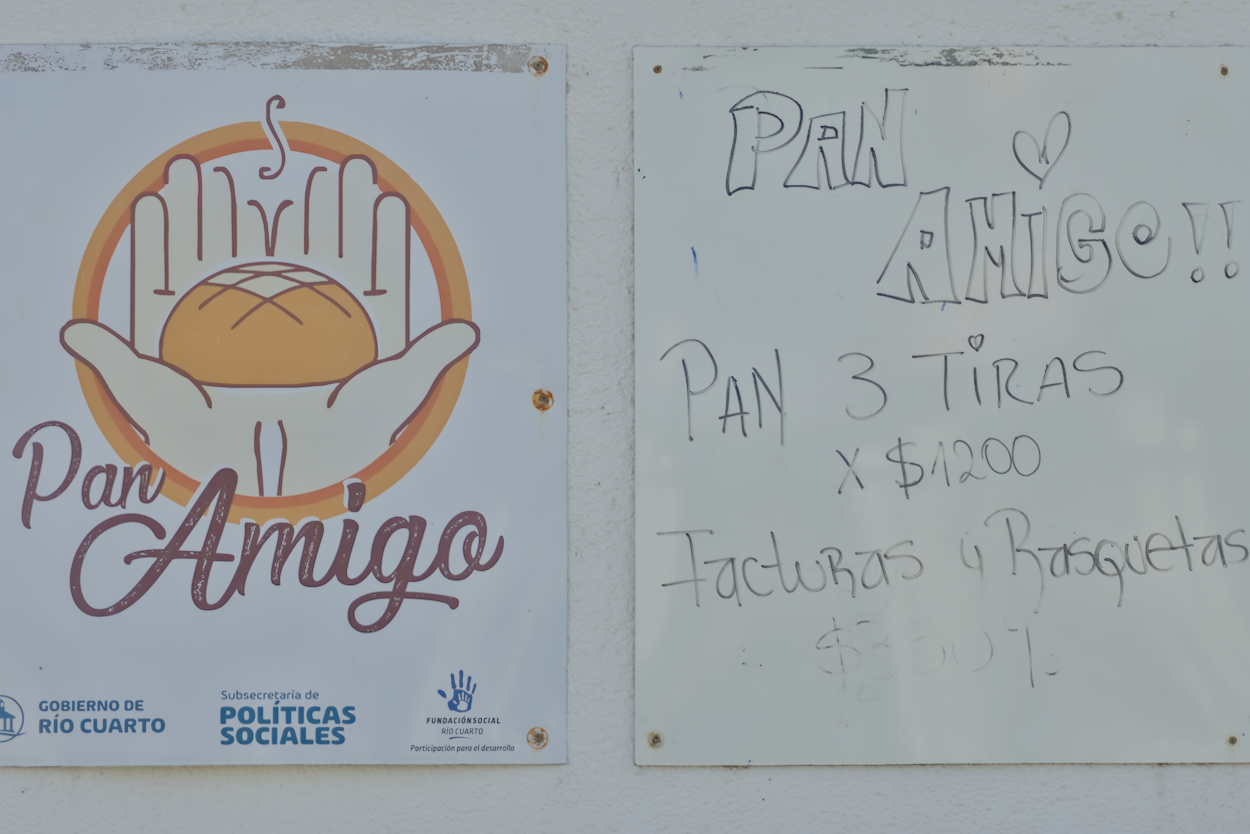 Pan
Amigo
GOBIERNO DE
RÍO CUARTO
Subsecretaría de
POLÍTICAS
SOCIALES
FUNDACIÓNSOCIAL
RÍO CUARTO
Participación para el desarrollo
PAN
AMiGO!!
PAN 3 TiRAS
X $1200
Facturas y Rasquetas